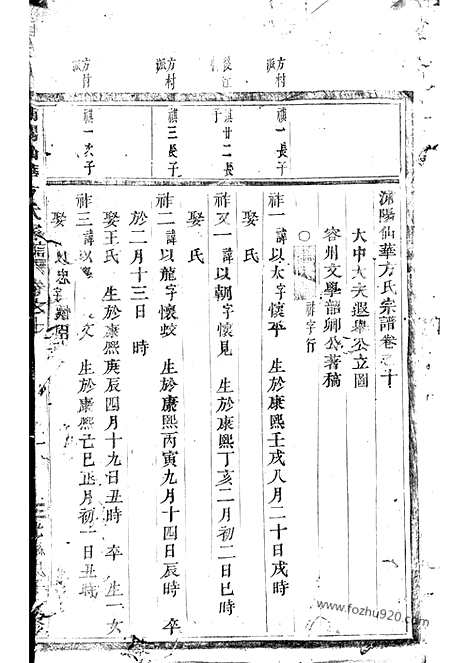 浦陽仙華方氏宗譜卷之十
大中大夫遐舉公立圖
容州文學韶卿公著稿
祚字行
方村派
祺一長子
祚一 諱以太字懷平 生於康熙壬戌八月二十日戌時
娶 氏
後江
祺廿二長子
祚又一 諱以朝字懷見 生於康熙丁亥二月初二日巳時
娶 氏
方村派
祺三長子
祚二 諱以龍字懷蛟 生於康熙丙寅九月十四日辰時 卒
於二月十三日 時
娶王氏 生於康熙庚辰四月十九日丑時 卒 生一女
方村派
祺一次子
祚三 諱以忠字 文 生於康熙己巳正月初一日丑時
娶
www.fozhu920.com